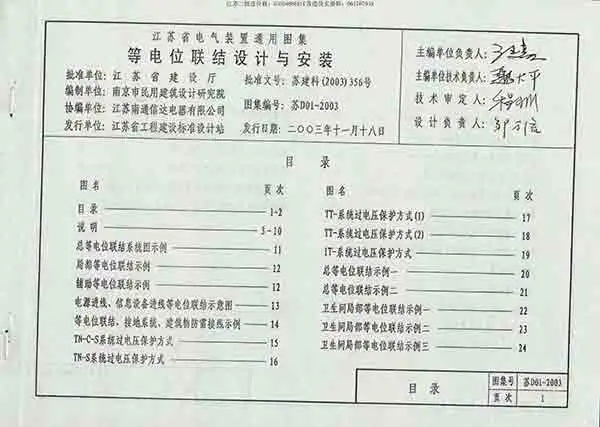 江苏省电气装置通用图集
等电位联结设计与安装
批准单位：江苏省建设厅 批准文号：苏建科(2003)356号
编制单位：南京市民用建筑设计研究院
协编单位：江苏南通信达电器有限公司 图集编号：苏D01-2003
发行单位：江苏省工程建设标准设计站 发行日期：二〇〇三年十一月十八日
主编单位负责人：
主编单位技术负责人：
技术审定人：
设计负责人：
目录
图名 页次
目录 1-2
说明 3-10
总等电位联结系统图示例 11
局部等电位联结示例 12
辅助等电位联结示例 12
电源进线、信息设备进线等电位联结示意图 13
等电位联结，接地系统、建筑物防雷接线示例 14
TN-C-S系统过电压保护方式 15
TN-S系统过电压保护方式 16
图名 页次
TT-系统过电压保护方式(1) 17
TT-系统过电压保护方式(2) 18
IT-系统过电压保护方式 19
总等电位联结示例一 20
总等电位联结示例二 21
卫生间局部等电位联结示例一 22
卫生间局部等电位联结示例二 23
卫生间局部等电位联结示例三 24
目录
图集号 苏D01-2003
页次 1